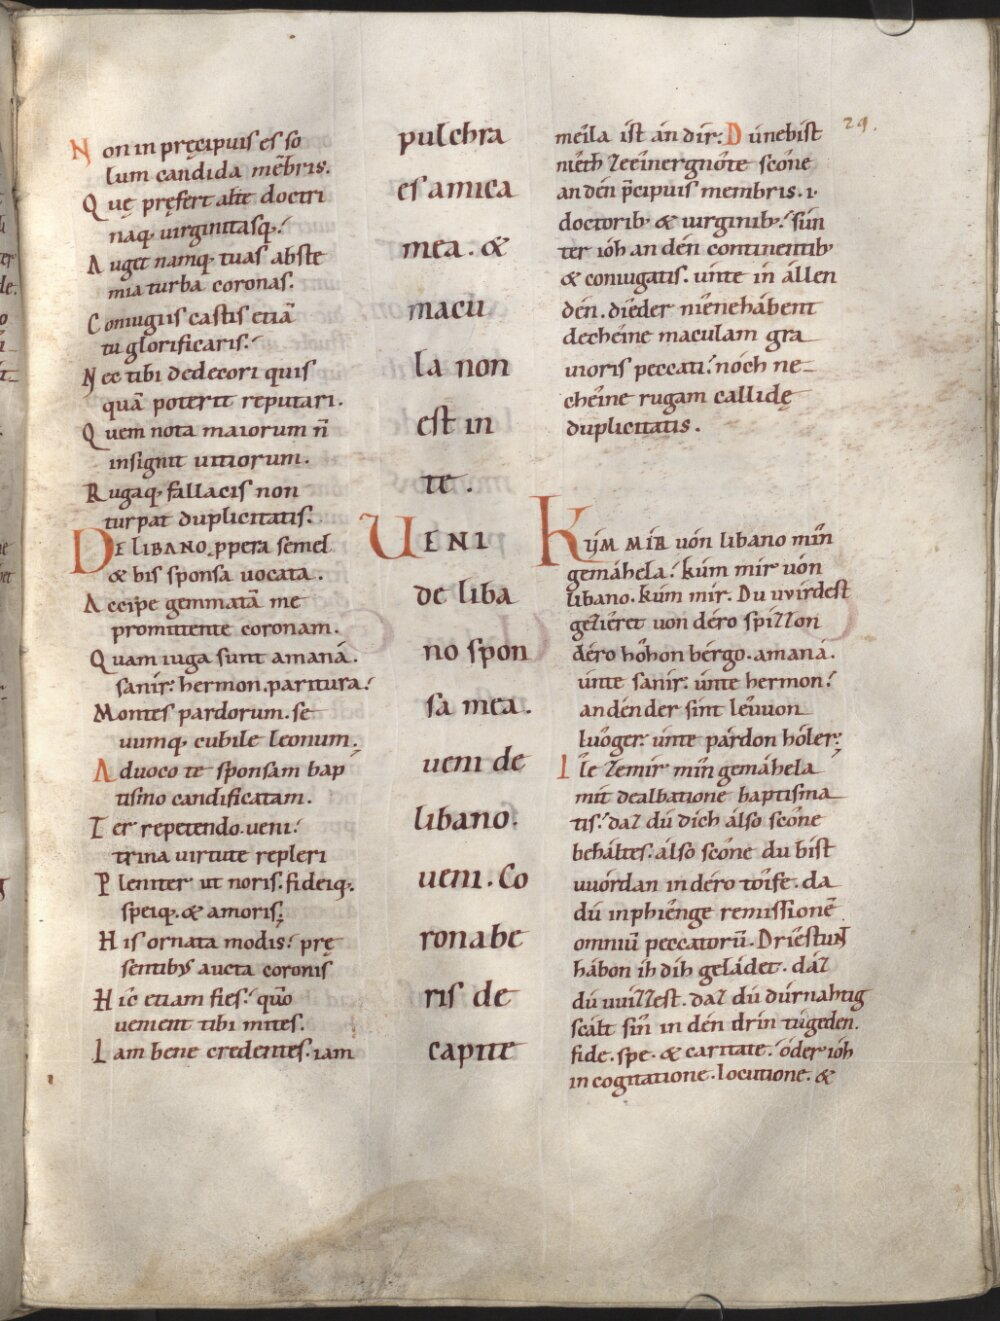 29.
Non in pręcipuis es so
lum candida mēbris.
Quę pręfert abste doctri
naq; virginitasq;
Auget namq; tuas abste
mia turba coronas.
Coniugiis castis etiā
tu glorificaris.
Nec tibi dedecori quis
quā poterit reputari.
Quem nota maiorum n̄
insignit uitiorum.
Rugaq; fallacis non
turpat duplicitatis.
DE LIBANO ꝓpera semel
& bis sponsa uocata.
Accipe gemmatā me
promittente coronam.
Quam iuga sunt amaná.
sanir: hermon. paritura.
Montes pardorum. se
uumq; cubile leonum.
Aduoco te sponsam bap
tismo candificatam.
Ter repetendo. ueni.
trina uirtute repleri
Pleniter ut noris. fideiq;
speiq; & amoris.
His ornata modis. prę
sentibus aucta coronis
Hic etiam fies. quō
uenient tibi mites.
Iam bene credentes. iam
pulchra
es amica
mea. &
macu
la non
est in
te.
UENI
de liba
no spon
sa mea.
ueni de
libano.
ueni. Co
ronabe
ris de
capite
meîla ist án dír: Dúnebist
nîeth zeeînergnôte scône
an dén p̄cipuis membris. i.
doctorib; & uirginib; sún
ter ióh an dén continentib;
& coniugatis. únte in állen
dén. dîeder nîenehábent
decheîne maculam gra
uioris peccati. nóch ne
cheîne rugam callidę
duplicitatis.
KUM MIR uón libano mîn
gemáhela. kúm mir uón
libano. kúm mir. Du uvírdest
geziêret uon déro spízzon
déro hôhon bérgo. amaná.
únte sanír: únte hermon.
an dén der sint léuuon
luôger: únte párdon hóler.
Île zemír mîn gemáhela
mit dealbatione baptisma
tis. daz dú dích álso scône
beháltes. álso scône du bíst
uuórdan in déro toîfe. da
dú inphîenge remissionē
omniū peccatorū. Dríestunt
hábon ih díh geládet. dáz
dú uuízzest. daz dú dúrnahtig
scált sîn in dén drín túgeden.
fide. spe. & caritate. óder ióh
in cogitatione. locutione. &